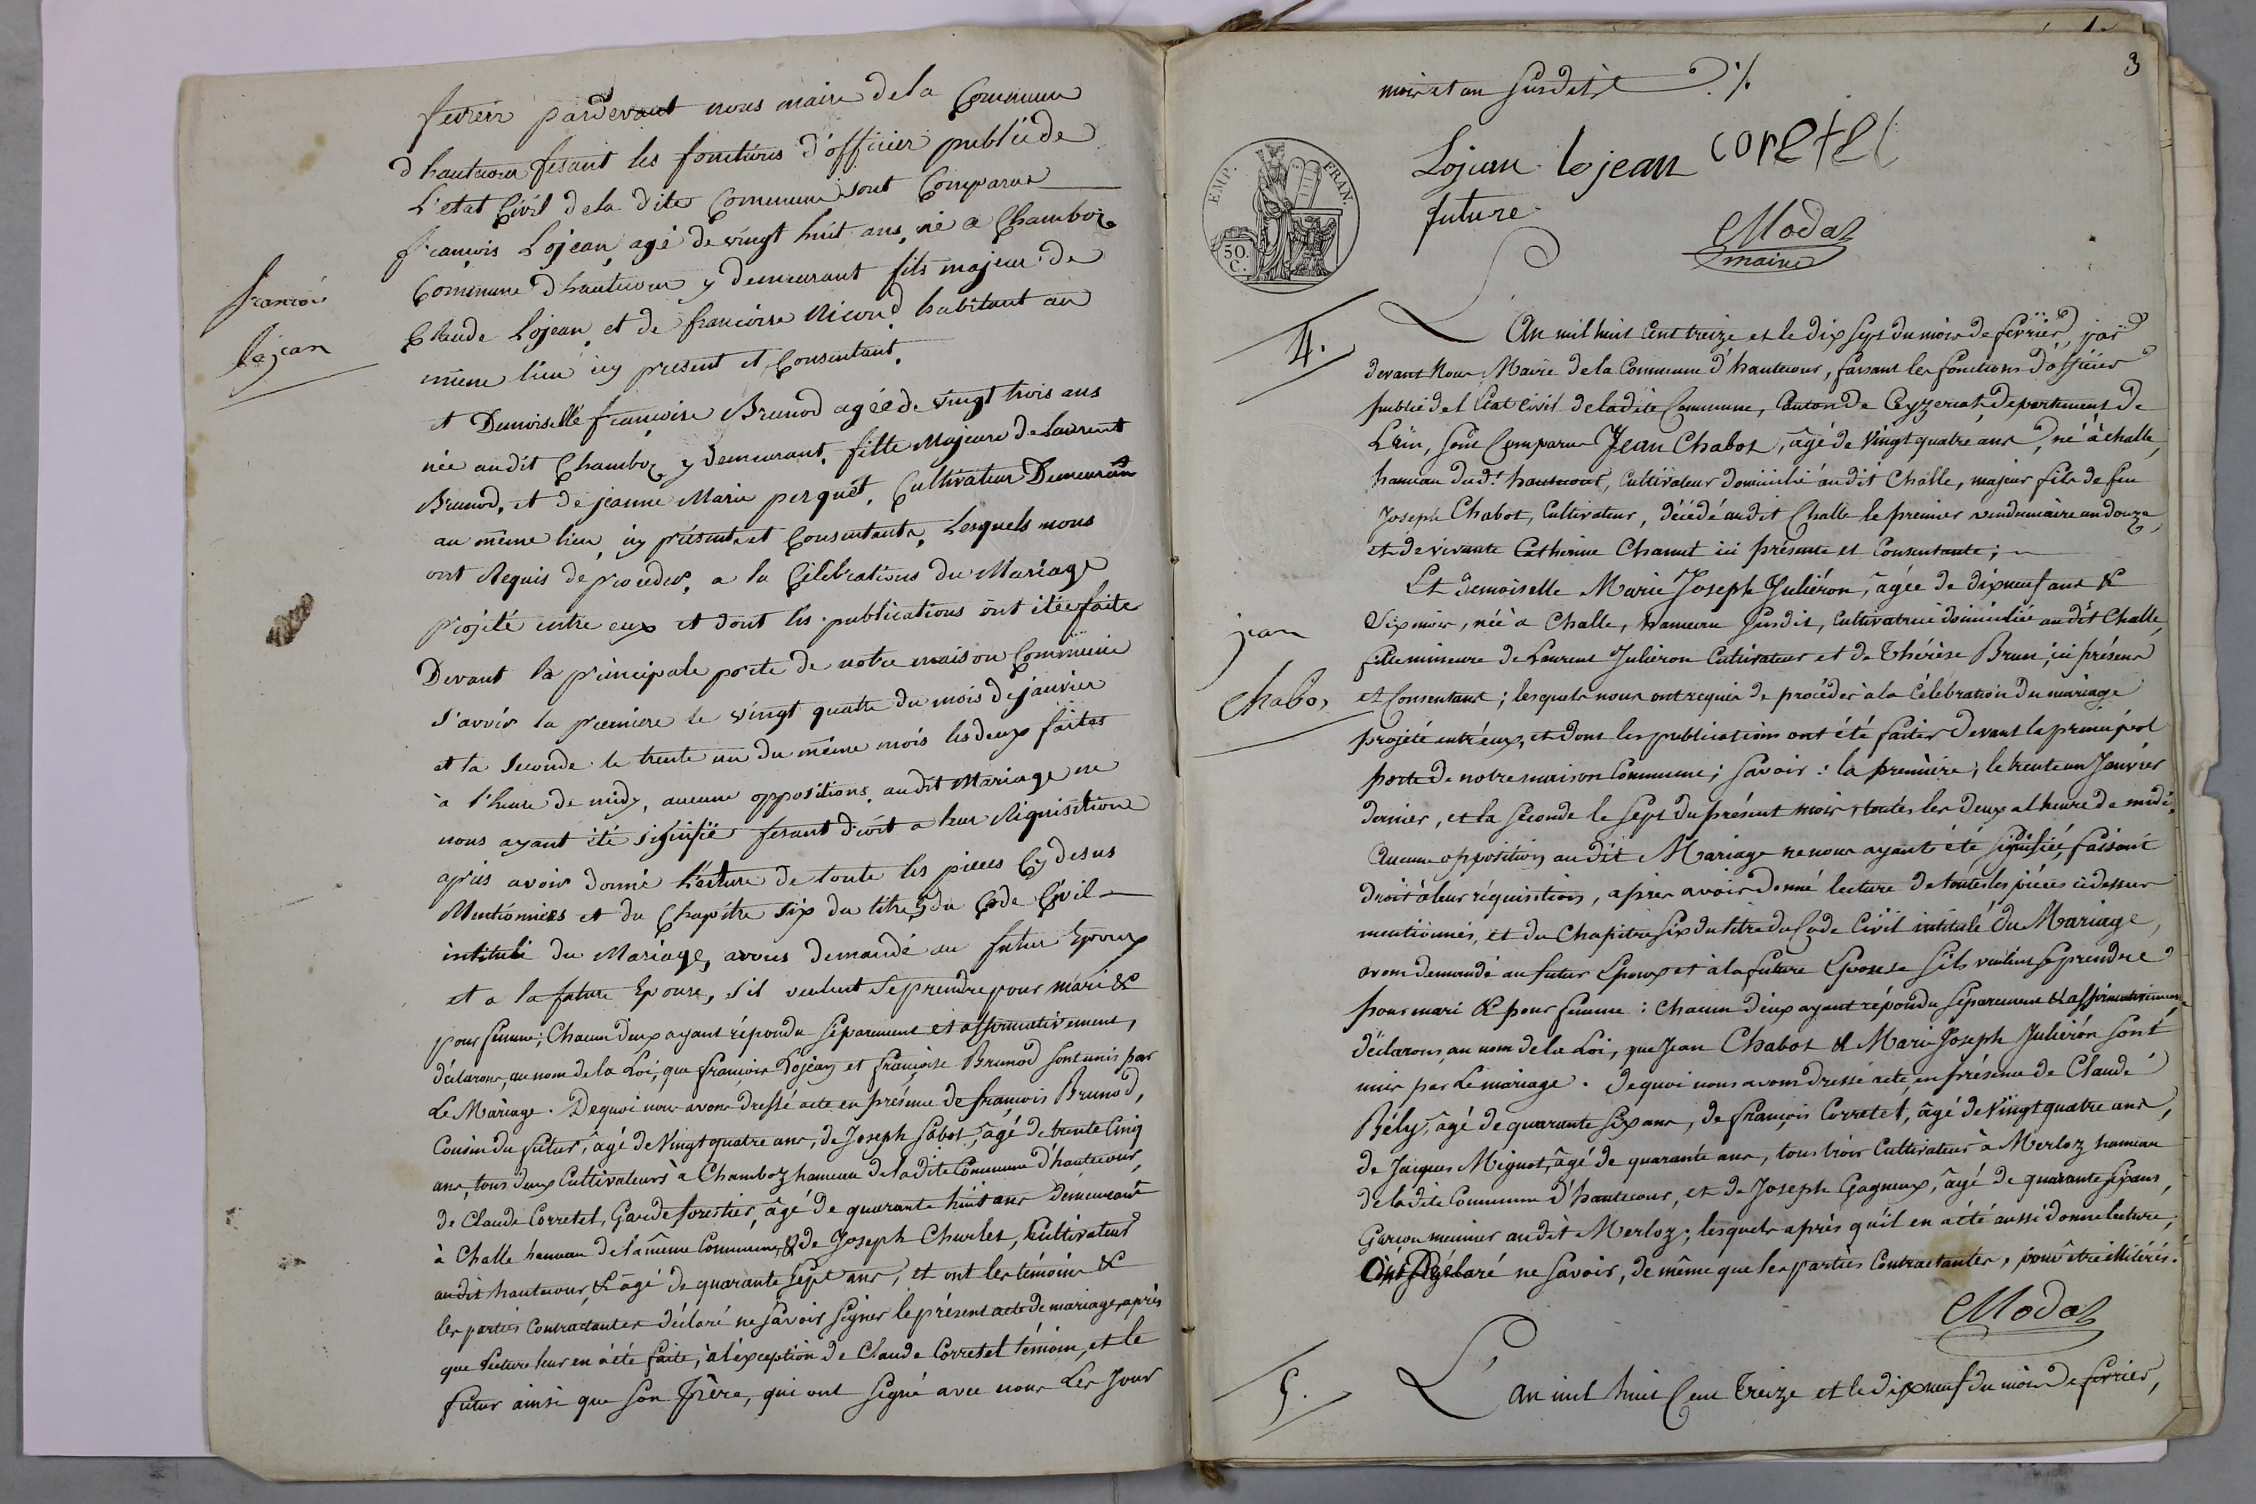 fevrier pardevant nous maire de la Commune
d'hautecour fesant les fonctions d'officier public de
L'etat Civil de la dite Commune sont Comparus
françois Lojean, agé de vingt huit ans, né a Chamboz
Commune d'hautecour y demeurant fils majeur de
Claude Lojean, et de françoise Nicoud habitant au
même lieu icy present et Consentant.
et Demoiselle françoise Brunod agéé de vingt trois ans
née audit Chamboz y demeurant, fille Majeure de Laurent
Brunod, et de jeanne Marie perquet, Cultivateur Demeurant
au même lieu, icy présents et Consentants, Lesquels nous
ont Requis de proceder, a la Célébrations du Mariage
projété entre eux et dont les publications ont étée faite
Devant la principale porte de notre maison Commune
s'avoir la premiere le vingt quatre du mois de janvier
et la Seconde le trente un du même mois les deux faites
à l'heure de midy, aucune oppositions, audit Mariage ne
nous ayant été signifié fesant droit a leur Réquisition
après avoir donné lecture de toute les pieces Cy desus
Mentionnées et du Chapitre six du titre 5 du Code Civil
intitulé du Mariage, avous demandé au futur Epoux
et a la future Epouse, s'il veulent se prendre pour mari &
pour femme; Chacun d'eux ayant répondu séparement et affirmativement,
déclarons, au nom de la Loi, que françois Lojean et françoise Brunod sont unis par
Le Mariage. De quoi nous avons dressé acte en présence de françois Brunod,
Cousin du futur, âgé de Vingt quatre ans, de Joseph Sabot, âgé de trente Cinq
ans, tous deux Cultivateurs à Chamboz hameau de la dite Commune d'hautecour,
de Claude Corretel, Garde forestier, âgé de quarante huit ans demeurant
à Challe hameau de la même Commune, & de Joseph Charles, Cultivateur
audit hautecour, & âgé de quarante sept ans, et ont les témoins &
les parties Contractantes déclaré ne savoir signer le présent acte de mariage, après
que Lecture leur en a été faite, à l'éxception de Claude Corretel témoin, et le
futur ainsi que son Père, qui ont signé avec nous Les Jour
françois
lojean
3
mois et an susdits ./.
Lojean lojean coretel
future
Modas
maire
EMP. FRAN.
50.
C.
4.
L'An mil huit Cent treize et le dix sept du mois de fevrier, par
devant Nous Maire de la Commune d'hautecour, faisant les fonctions d'officier
public de l'Etat Civil de la dite Commune, Canton de Ceyzeriat département de
L'Ain, sont Comparus Jean Chabot, âgé de Vingt quatre ans, né à Challe,
hameau dud.t hautecour, Cultivateur domicilié audit Challe, majeur fils de feu
Joseph Chabot, Cultivateur, décédé audit Challe le premier vendemiaire an douze,
et de vivante Catherine Chanut ici présente et Consentante;
Et demoiselle Marie Joseph Juliéron, âgée de dix neuf ans &
Six mois, née à Challe, hameau susdit, Cultivatrice domiciliée audit Challe,
fille mineure de Laurent Juliéron Cultivateur et de Thérèse Brun, ici présens
et Consentans; lesquels nous ont requis de procéder à la Célebration du mariage
projété entr'eux, et dont les publications ont été faites devant la principal
porte de notre maison Commune; savoir: la première, le trente un Janvier
dernier, et la seconde le sept du présent mois, toutes les deux à l'heure de midi,
Aucune opposition audit Mariage ne nous ayant été signifiée, faisant
droit à leur réquisition, après avoir donné lecture de toutes les pièces ci dessus
mentionnés, et du Chapitre six du titre du Code Civil intitulé Du Mariage,
avons demandé au futur Epoux et à la future Epouse s'ils veulent se prendre
pour mari & pour femme: Chacun d'eux ayant répondu séparement & affirmativement,
déclarons, au nom de la Loi, que Jean Chabot & Marie Joseph Juliéron sont
unis par le mariage. De quoi nous avons dressé acte en présence de Claude
Bély, âgé de quarante six ans, de françois Corretet, âgé de Vingt quatre ans,
de Jacques Mignot, âgé de quarante ans, tous trois Cultivateurs à Merloz hameau
de la dite Commune d'hautecour, et de Joseph Gagneux, âgé de quarante six ans,
Garçon meunier audit Merloz; lesquels après qu'il en a été aussi donné lecture,
Ont Déclaré ne savoir, de même que les parties Contractantes, pour être illitérés.
Modas
jean
Chabos
5.
L'an mil huit Cent Treize et le dix neuf du mois de fevrier,